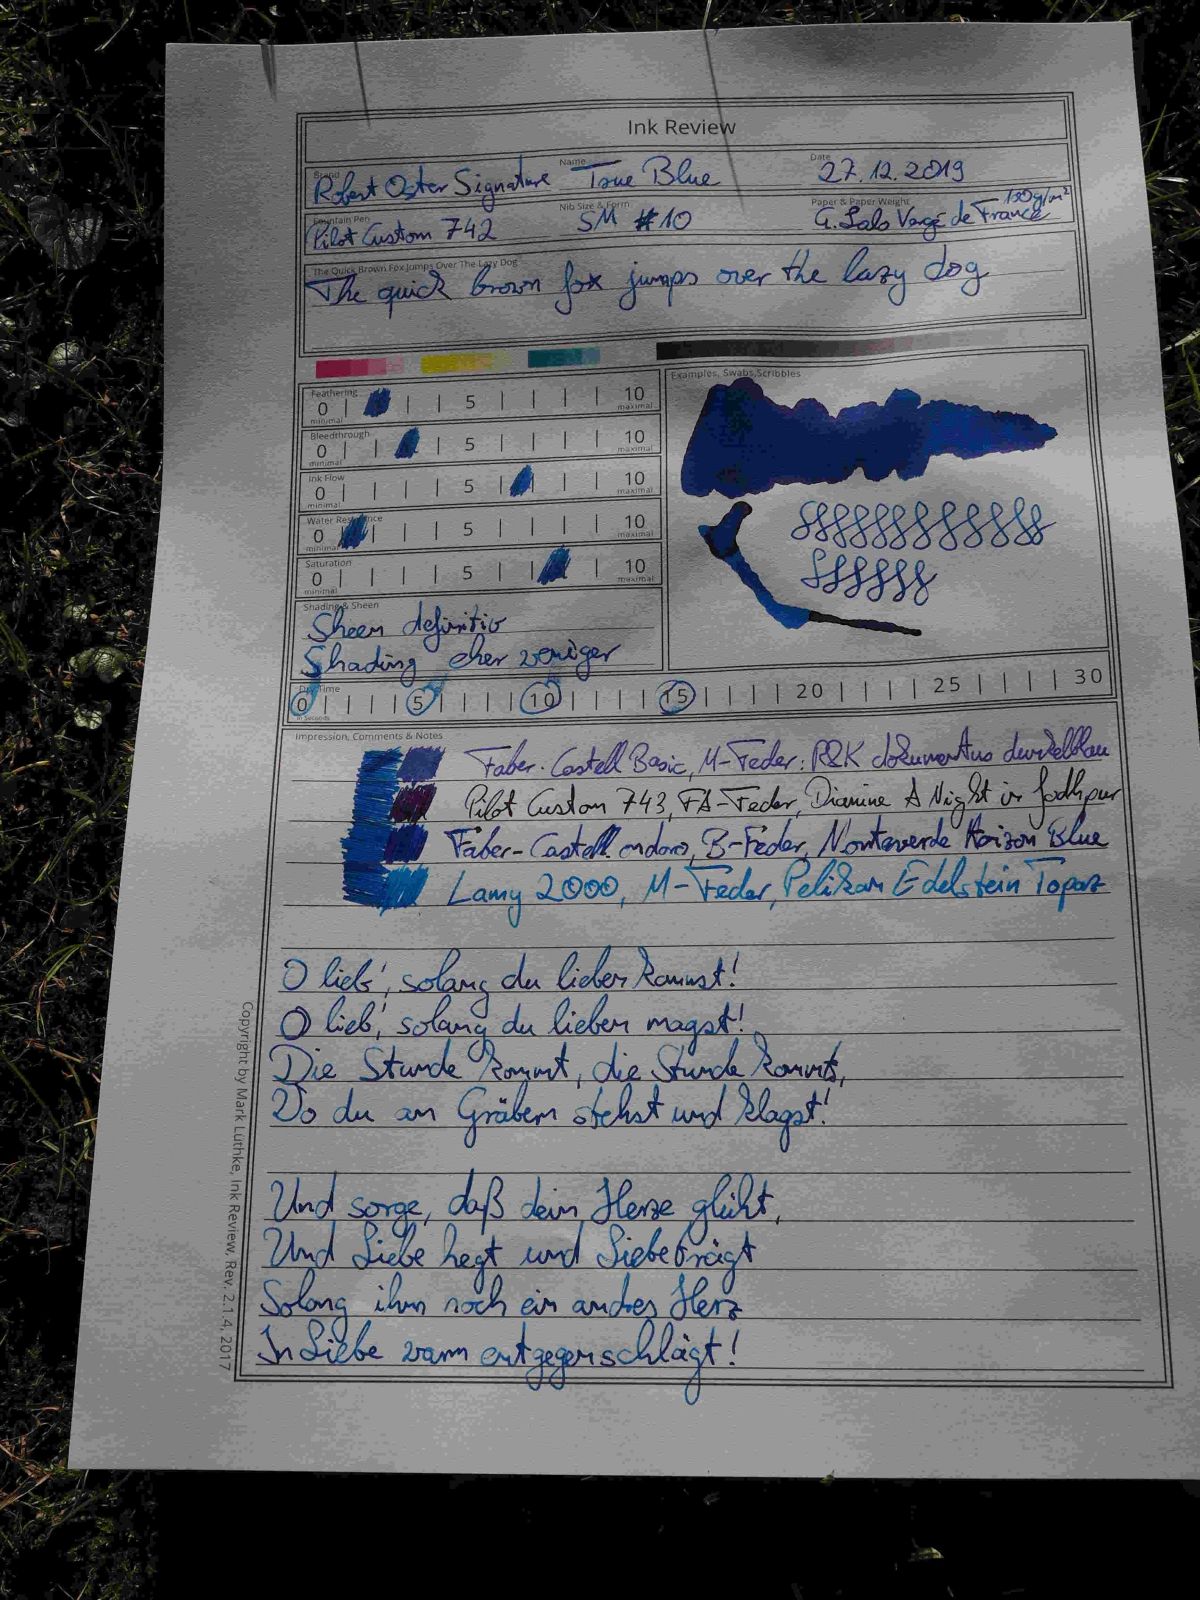 Ink Review
Brand Name Date
Robert Oster Signature True Blue 27.12.2019
Fountain Pen Nib Size & Form Paper & Paper Weight
Pilot Custom 742 SM #10 G. Lalo Vergé de France 130g/m²
The Quick Brown Fox Jumps Over The Lazy Dog
The quick brown fox jumps over the lazy dog
Examples, Swabs,Scribbles
Feathering
0 5 10
minimal maximal
Bleedthrough
0 5 10
minimal maximal
Ink Flow
0 5 10
minimal maximal
Water Resistance
0 5 10
minimal maximal
Saturation
0 5 10
minimal maximal
Shading & Sheen
Sheen definitiv
Shading eher weniger
Dry Time
0 5 10 15 20 25 30
in Seconds
Impression, Comments & Notes
Faber-Castell Basic, M-Feder: R&K dokumentus dunkelblau
Pilot Custom 743, FA-Feder, Diamine A Night in Jodhpur
Faber-Castell ondoro, B-Feder, Monteverde Horizon Blue
Lamy 2000, M-Feder, Pelikan Edelstein Topaz
O lieb', solang du lieben kannst!
O lieb', solang du lieben magst!
Die Stunde kommt, die Stunde kommt,
Wo du an Gräbern stehst und klagst!
Und sorge, daß dein Herze glüht,
Und Liebe hegt und Liebe trägt
Solang ihm noch ein andres Herz
In Liebe warm entgegenschlägt!
Copyright by Mark Lüthke, Ink Review, Rev. 2.1.4, 2017